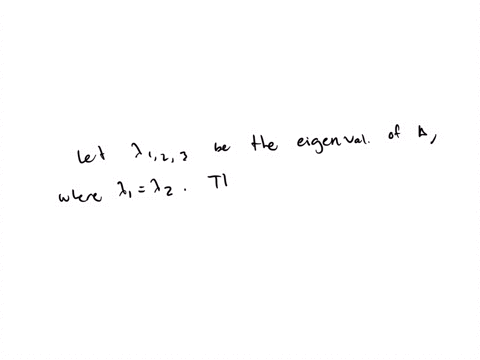 Let λ₁,₂,₃ be the eigenval. of A,
where λ₁ = λ₂. Th